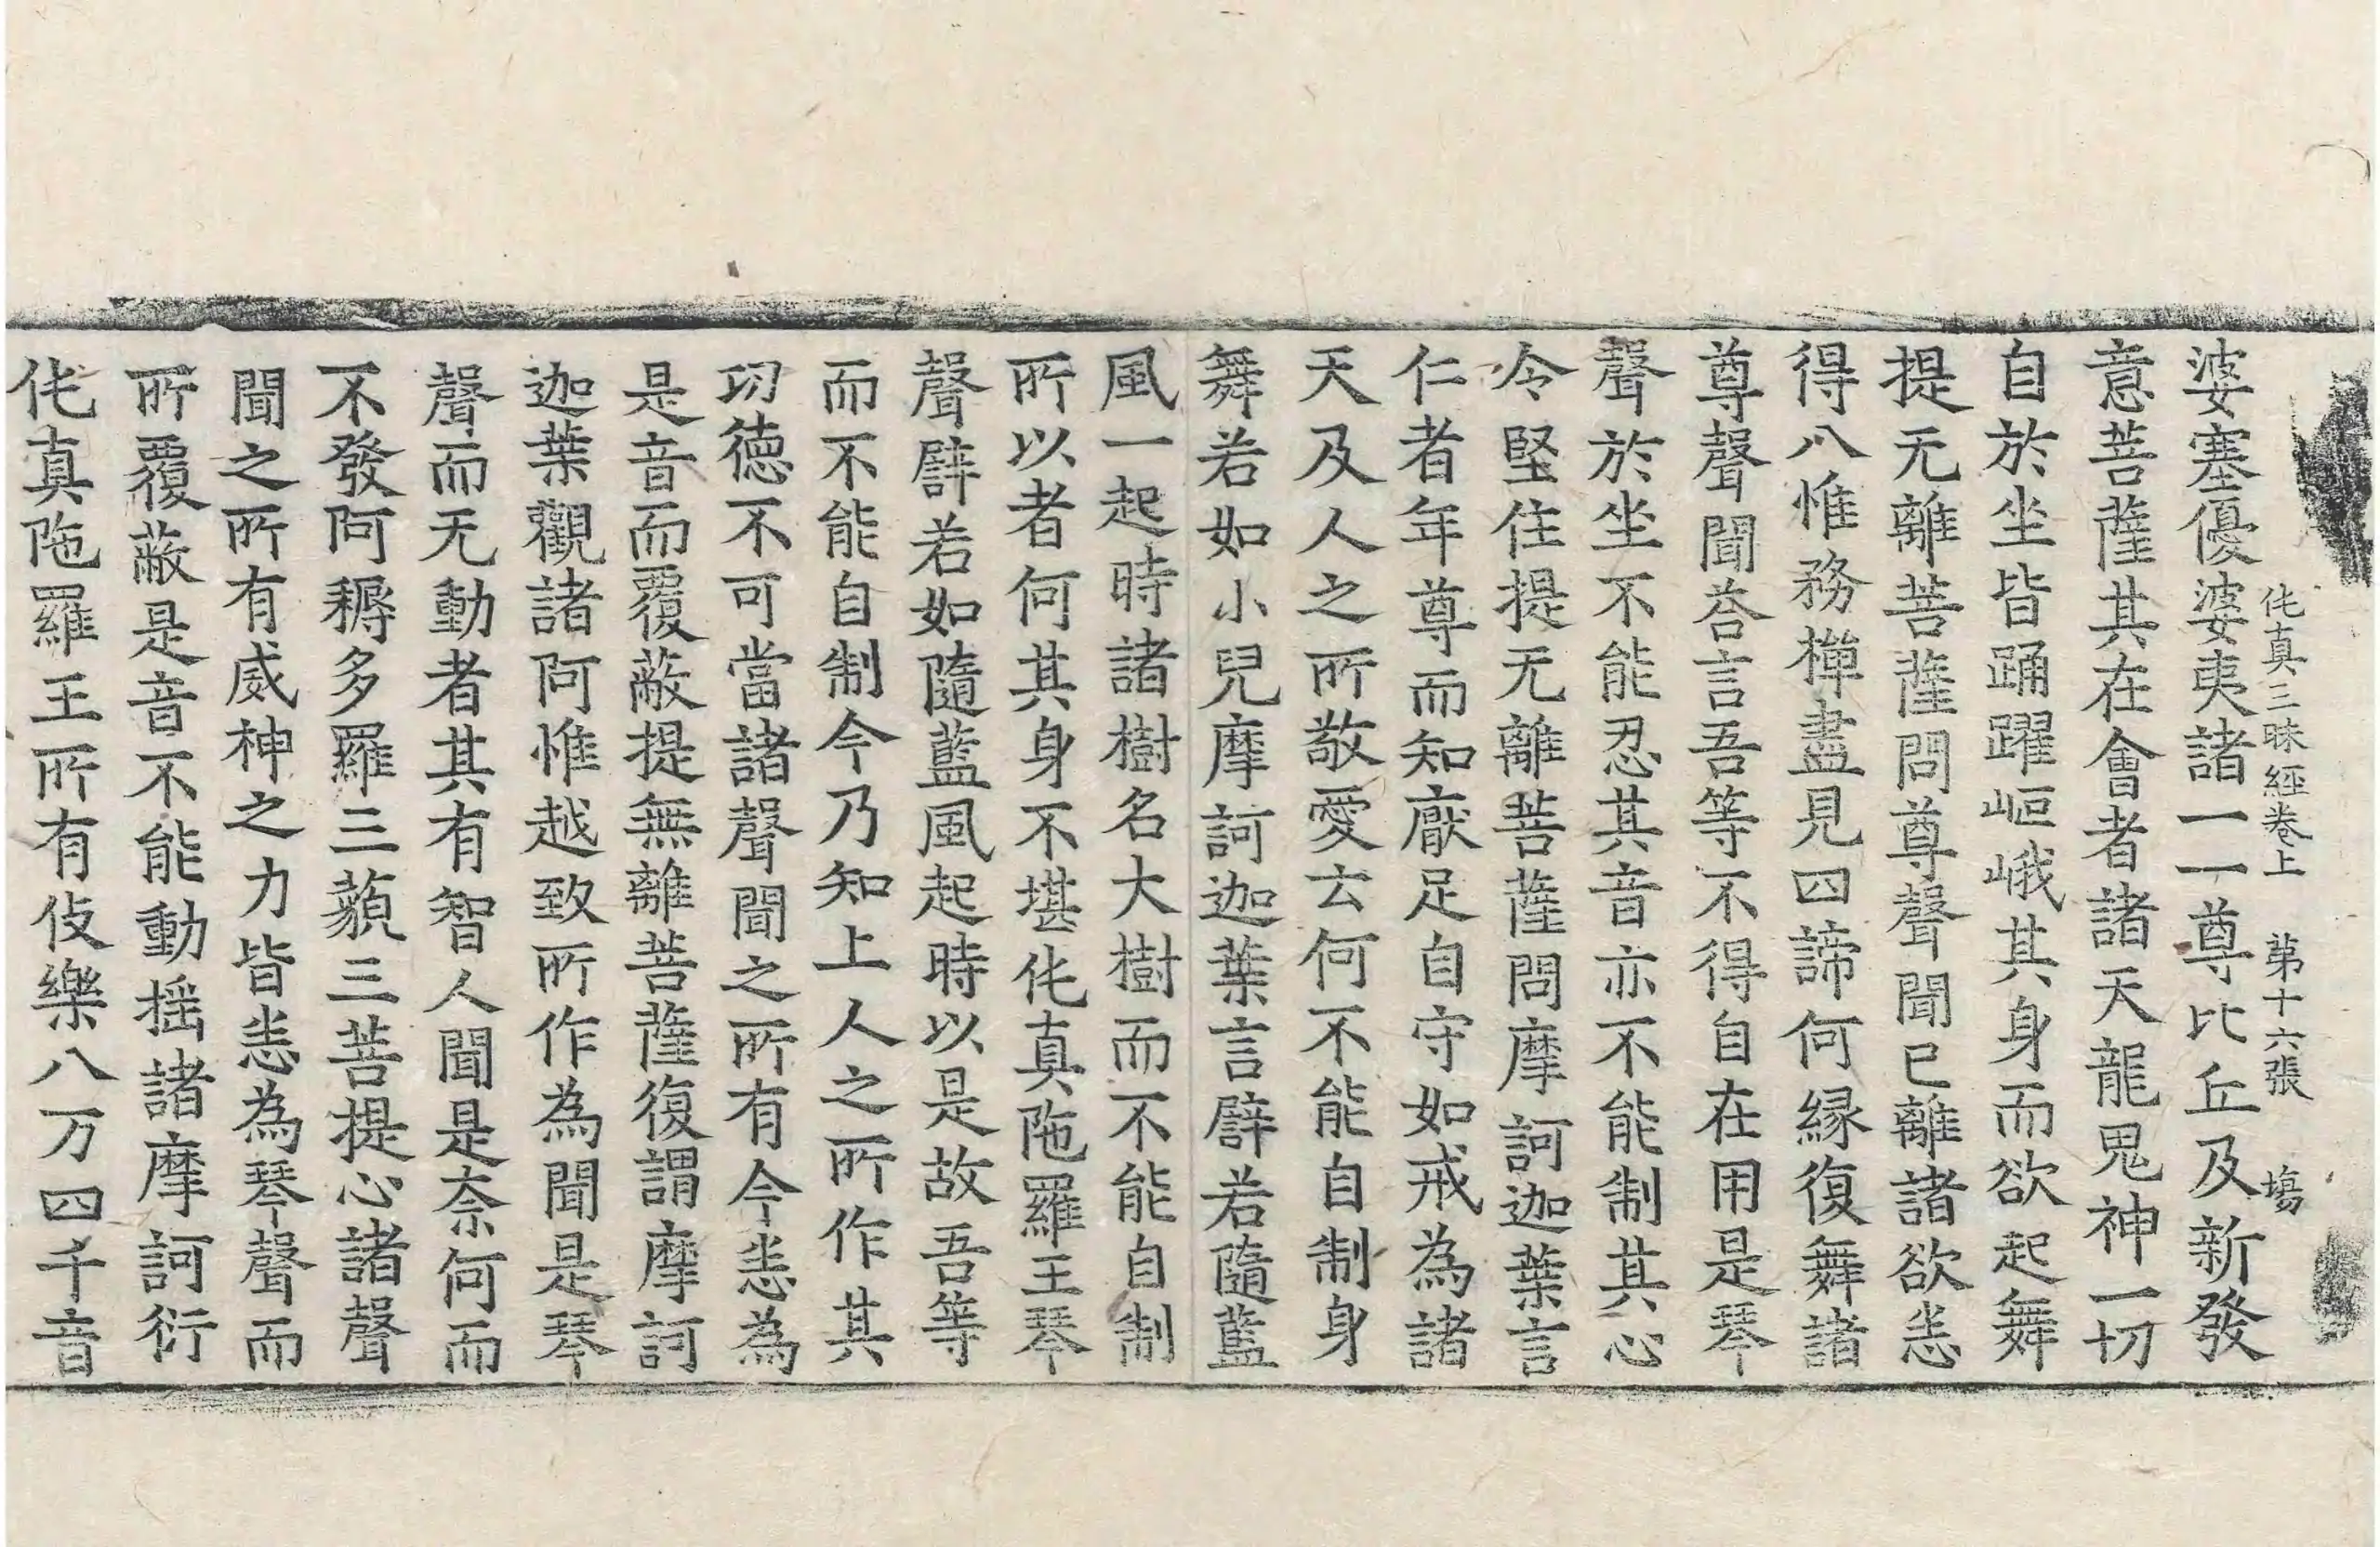 仛真三昧經卷上 苐十六張 塲
婆塞優婆夷諸一一尊比丘及新發
意菩薩其在會者諸天龍鬼神一切
自於坐皆踊躍岖峨其身而欲起舞
提无離菩薩問尊聲聞已離諸欲恙
得八惟務禪盡見四諦何縁復舞諸
尊聲聞荅言吾等不得自在用是琴
聲於坐不能忍其音亦不能制其心
令堅住提无離菩薩問摩訶迦葉言
仁者年尊而知厭足自守如戒為諸
天及人之所敬愛云何不能自制身
舞若如小兒摩訶迦葉言譬若隨藍
風一起時諸樹名大樹而不能自制
所以者何其身不堪仛真陁羅王琴
聲譬若如隨藍風起時以是故吾等
而不能自制今乃知上人之所作其
功德不可當諸聲聞之所有今恙為
是音而覆蔽提無離菩薩復謂摩訶
迦葉觀諸阿惟越致所作為聞是琴
聲而无動者其有智人聞是柰何而
不發阿耨多羅三藐三菩提心諸聲
聞之所有威神之力皆恙為琴聲而
所覆蔽是音不能動揺諸摩訶衍
仛真陁羅王所有伎樂八万四千音